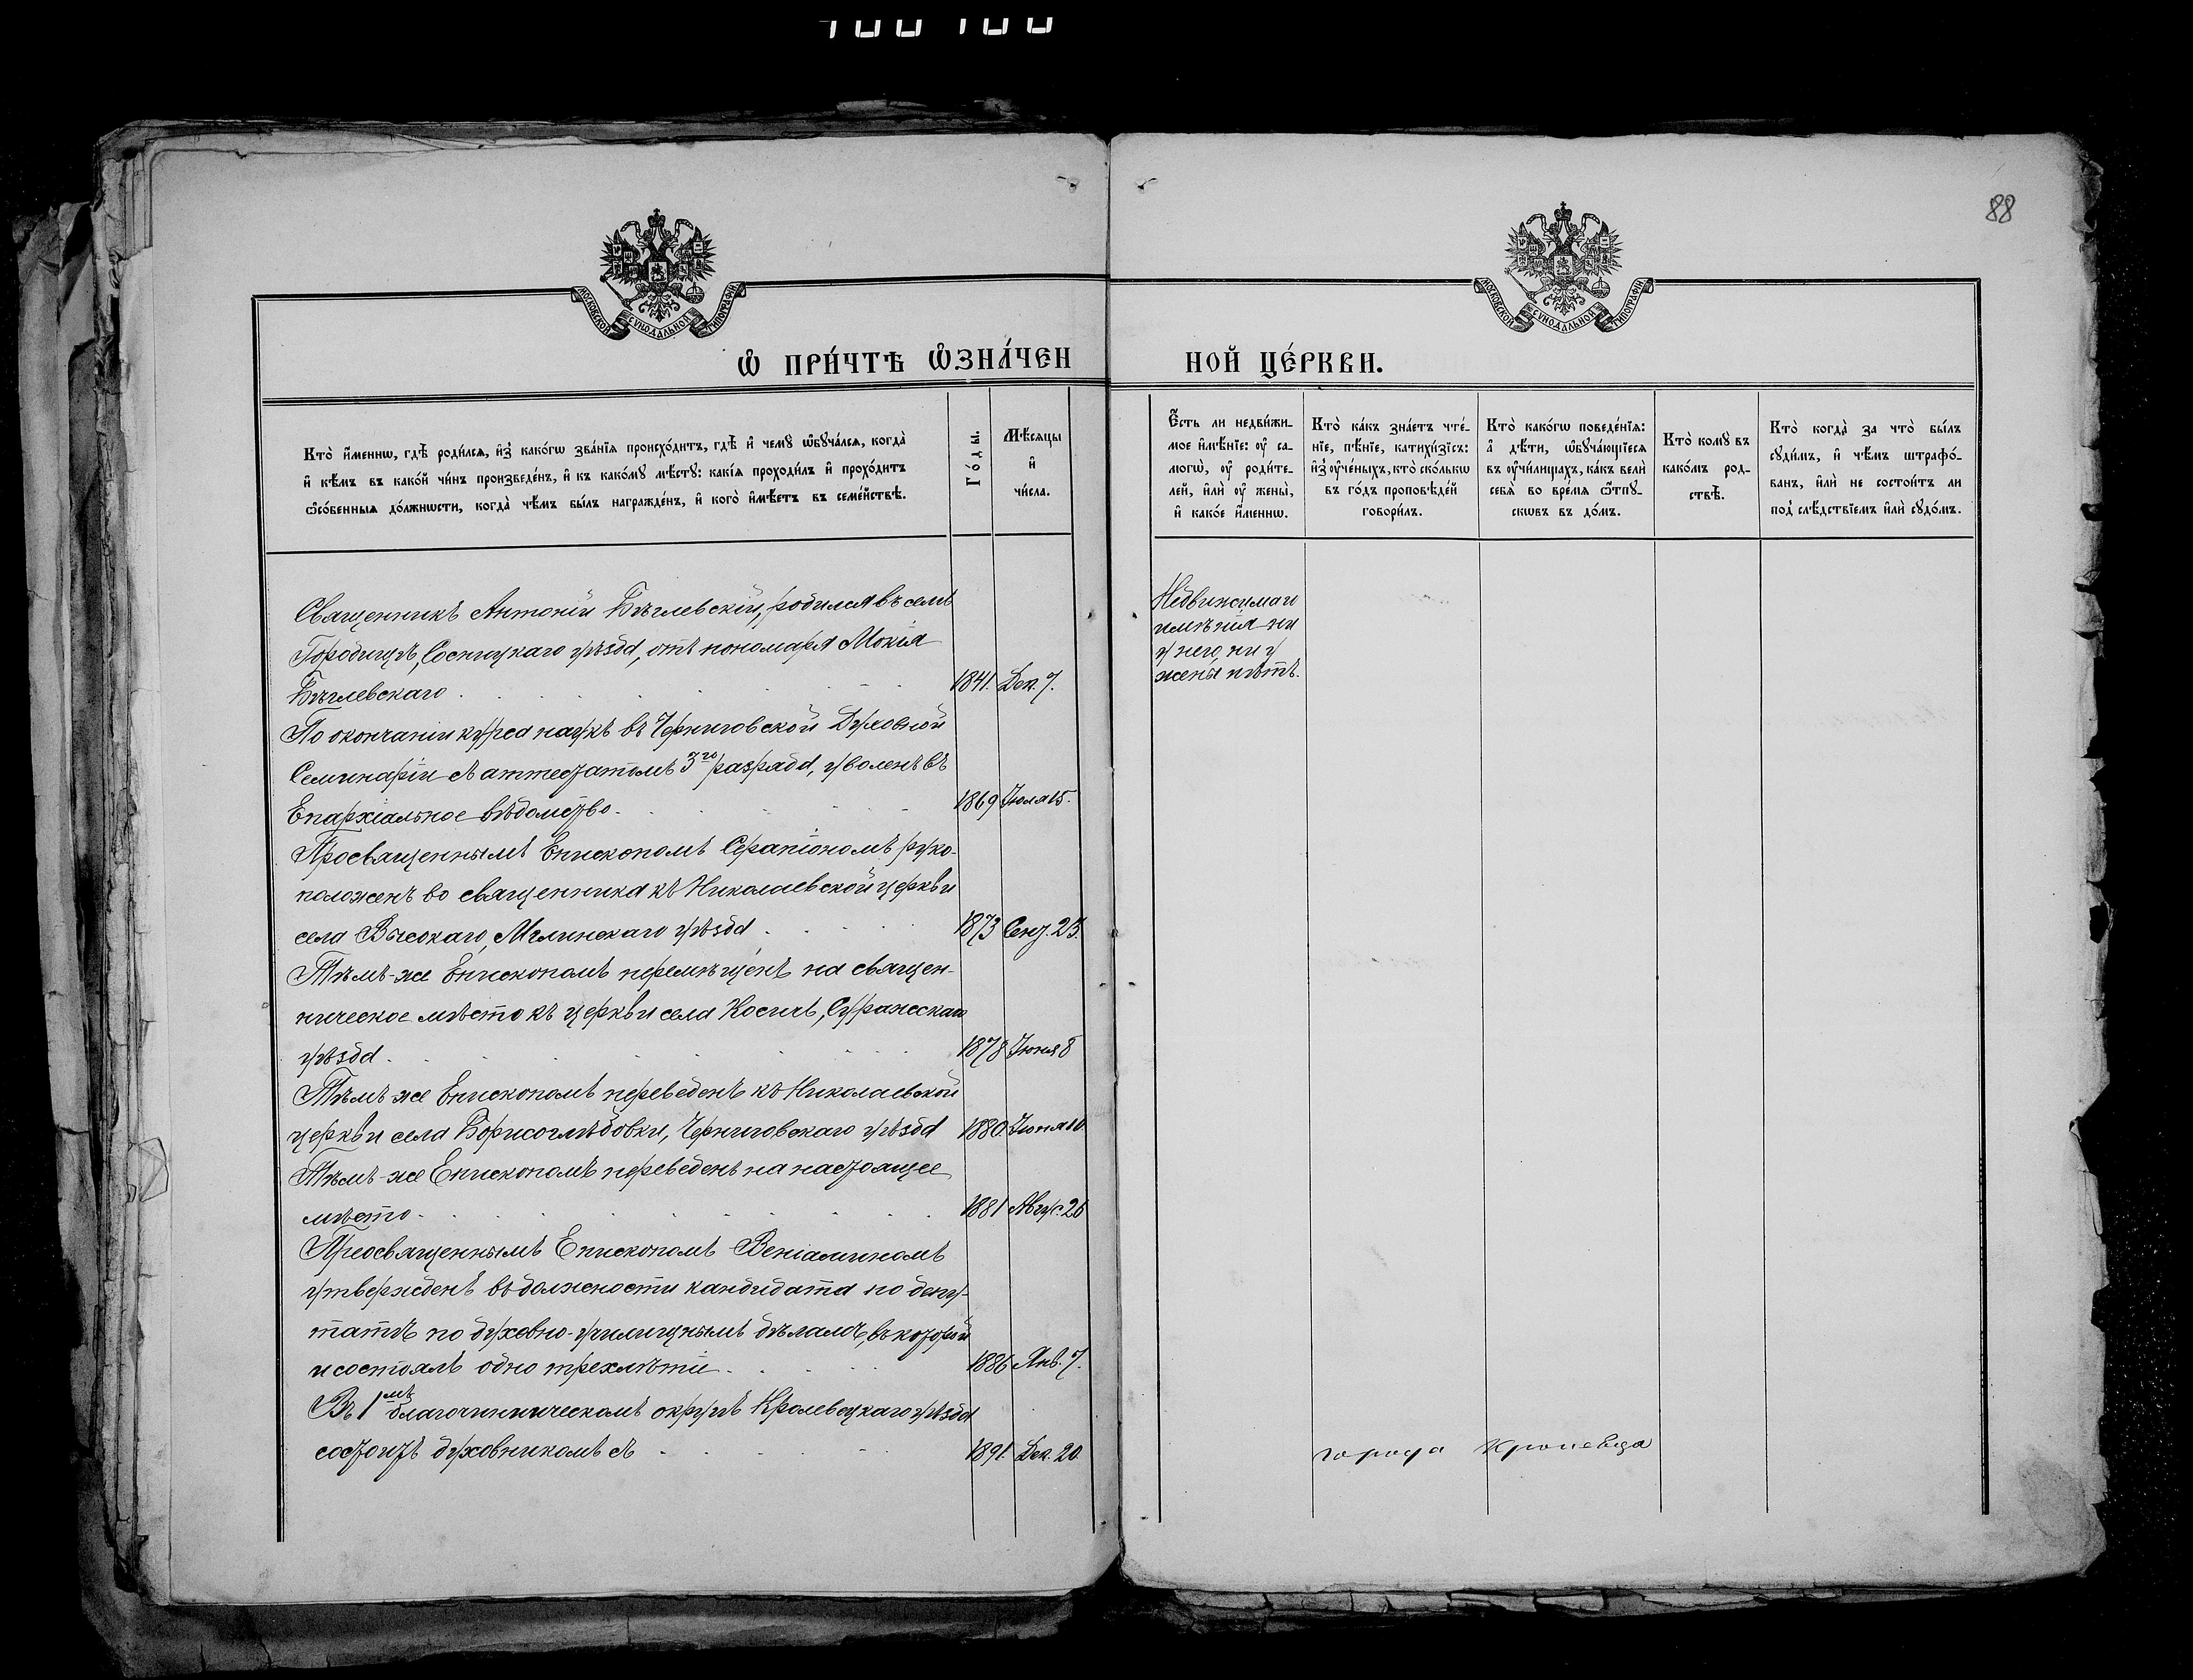 88
МОСКОВСКОЙ СѴНОДАЛЬНОЙ ТИПОГРАФІИ
МОСКОВСКОЙ СѴНОДАЛЬНОЙ ТИПОГРАФІИ
Ѡ҆ ПРИ́ЧТѢ Ѡ҆ЗНА́ЧЕН
НОЙ ЦЕ́РКВИ.
Кто̀ и҆́меннѡ, гдѣ̀ роди́лся, и҆з̾ како́гѡ зва́нїя происхо́дитъ, гдѣ̀ и҆ чемꙋ̀ ѡ҆бꙋча́лся, когда̀
и҆ кѣ́мъ въ како́й чи́нъ произведе́нъ, и҆ къ како́мꙋ мѣ́стꙋ: какі́я проходи́лъ и҆ прохо́дитъ
ѻ҆со́бенныя до́лжнѡсти, когда̀ чѣ́мъ бы́лъ награжде́нъ, и҆ кого̀ и҆мѣ́етъ въ семе́йствѣ.
Го́ды.
Мѣ́сяцы
и҆
чи́сла.
Є҆́сть ли недви́жи-
мое и҆мѣ́нїе: ᲂу҆ са-
могѡ̀, ᲂу҆ роди́те-
лей, и҆лѝ ᲂу҆ жены̀,
и҆ како́е и҆́меннѡ.
Кто̀ ка́къ зна́етъ чте́-
нїе, пѣ́нїе, катихи́зїсъ:
и҆з̾ ᲂу҆че́ныхъ, кто̀ ско́лькѡ
въ го́дъ проповѣ́дей
говори́лъ.
Кто̀ како́гѡ поведе́нїя:
а҆ дѣ́ти, ѡ҆бꙋча́ющїеся
въ ᲂу҆чи́лищахъ, ка́къ велѝ
себѧ̀ во вре́мя ѿпꙋ-
скѡвъ въ до́мъ.
Кто̀ комꙋ̀ въ
како́мъ род-
ствѣ̀.
Кто̀ когда̀ за что̀ бы́лъ
сꙋди́мъ, и҆ чѣ́мъ штрафо́-
ванъ, и҆лѝ не состои́тъ ли
под̾ слѣ́дствїемъ и҆лѝ сꙋдо́мъ.
Священникъ Антоній Бѣглевскій, родился въ селѣ
Городищѣ, Сосницкаго уѣзда, отъ пономаря Мокія
Бѣглевскаго 1841. Дек. 7.
По окончаніи курса наукъ въ Черниговской Духовной
Семинаріи съ аттестатомъ 3го разряда, уволенъ въ
Епархіальное вѣдомство 1869 Іюля 15.
Преосвященнымъ Епископомъ Серапіономъ руко-
положенъ во священника къ Николаевской церкви
села Высокаго, Мглинскаго уѣзда 1873 Сент. 23.
Тѣмъ-же Епископомъ перемѣщенъ на священ-
ническое мѣсто къ церкви села Косичъ, Суражскаго
уѣзда 1878 Іюня 8
Тѣмъ же Епископомъ переведенъ къ Николаевской
церкви села Борисоглѣбовки, Черниговскаго уѣзда 1880. Іюня 10.
Тѣмъ-же Епископомъ переведенъ на настоящее
мѣсто 1881 Авгус. 26
Преосвященнымъ Епископомъ Веніаминомъ
утвержденъ въ должности кандидата по депу-
татѣ по духовно-училищнымъ дѣламъ, въ которой
и состоялъ одно трехлѣтіе 1886 Янв. 7.
Въ 1мъ благочинническомъ округѣ Кролевецкаго уѣзда
состоитъ духовникомъ съ 1891. Дек. 20.
Недвижимаго
имѣнія ни
у него, ни у
жены нѣтъ.
города Кролевца